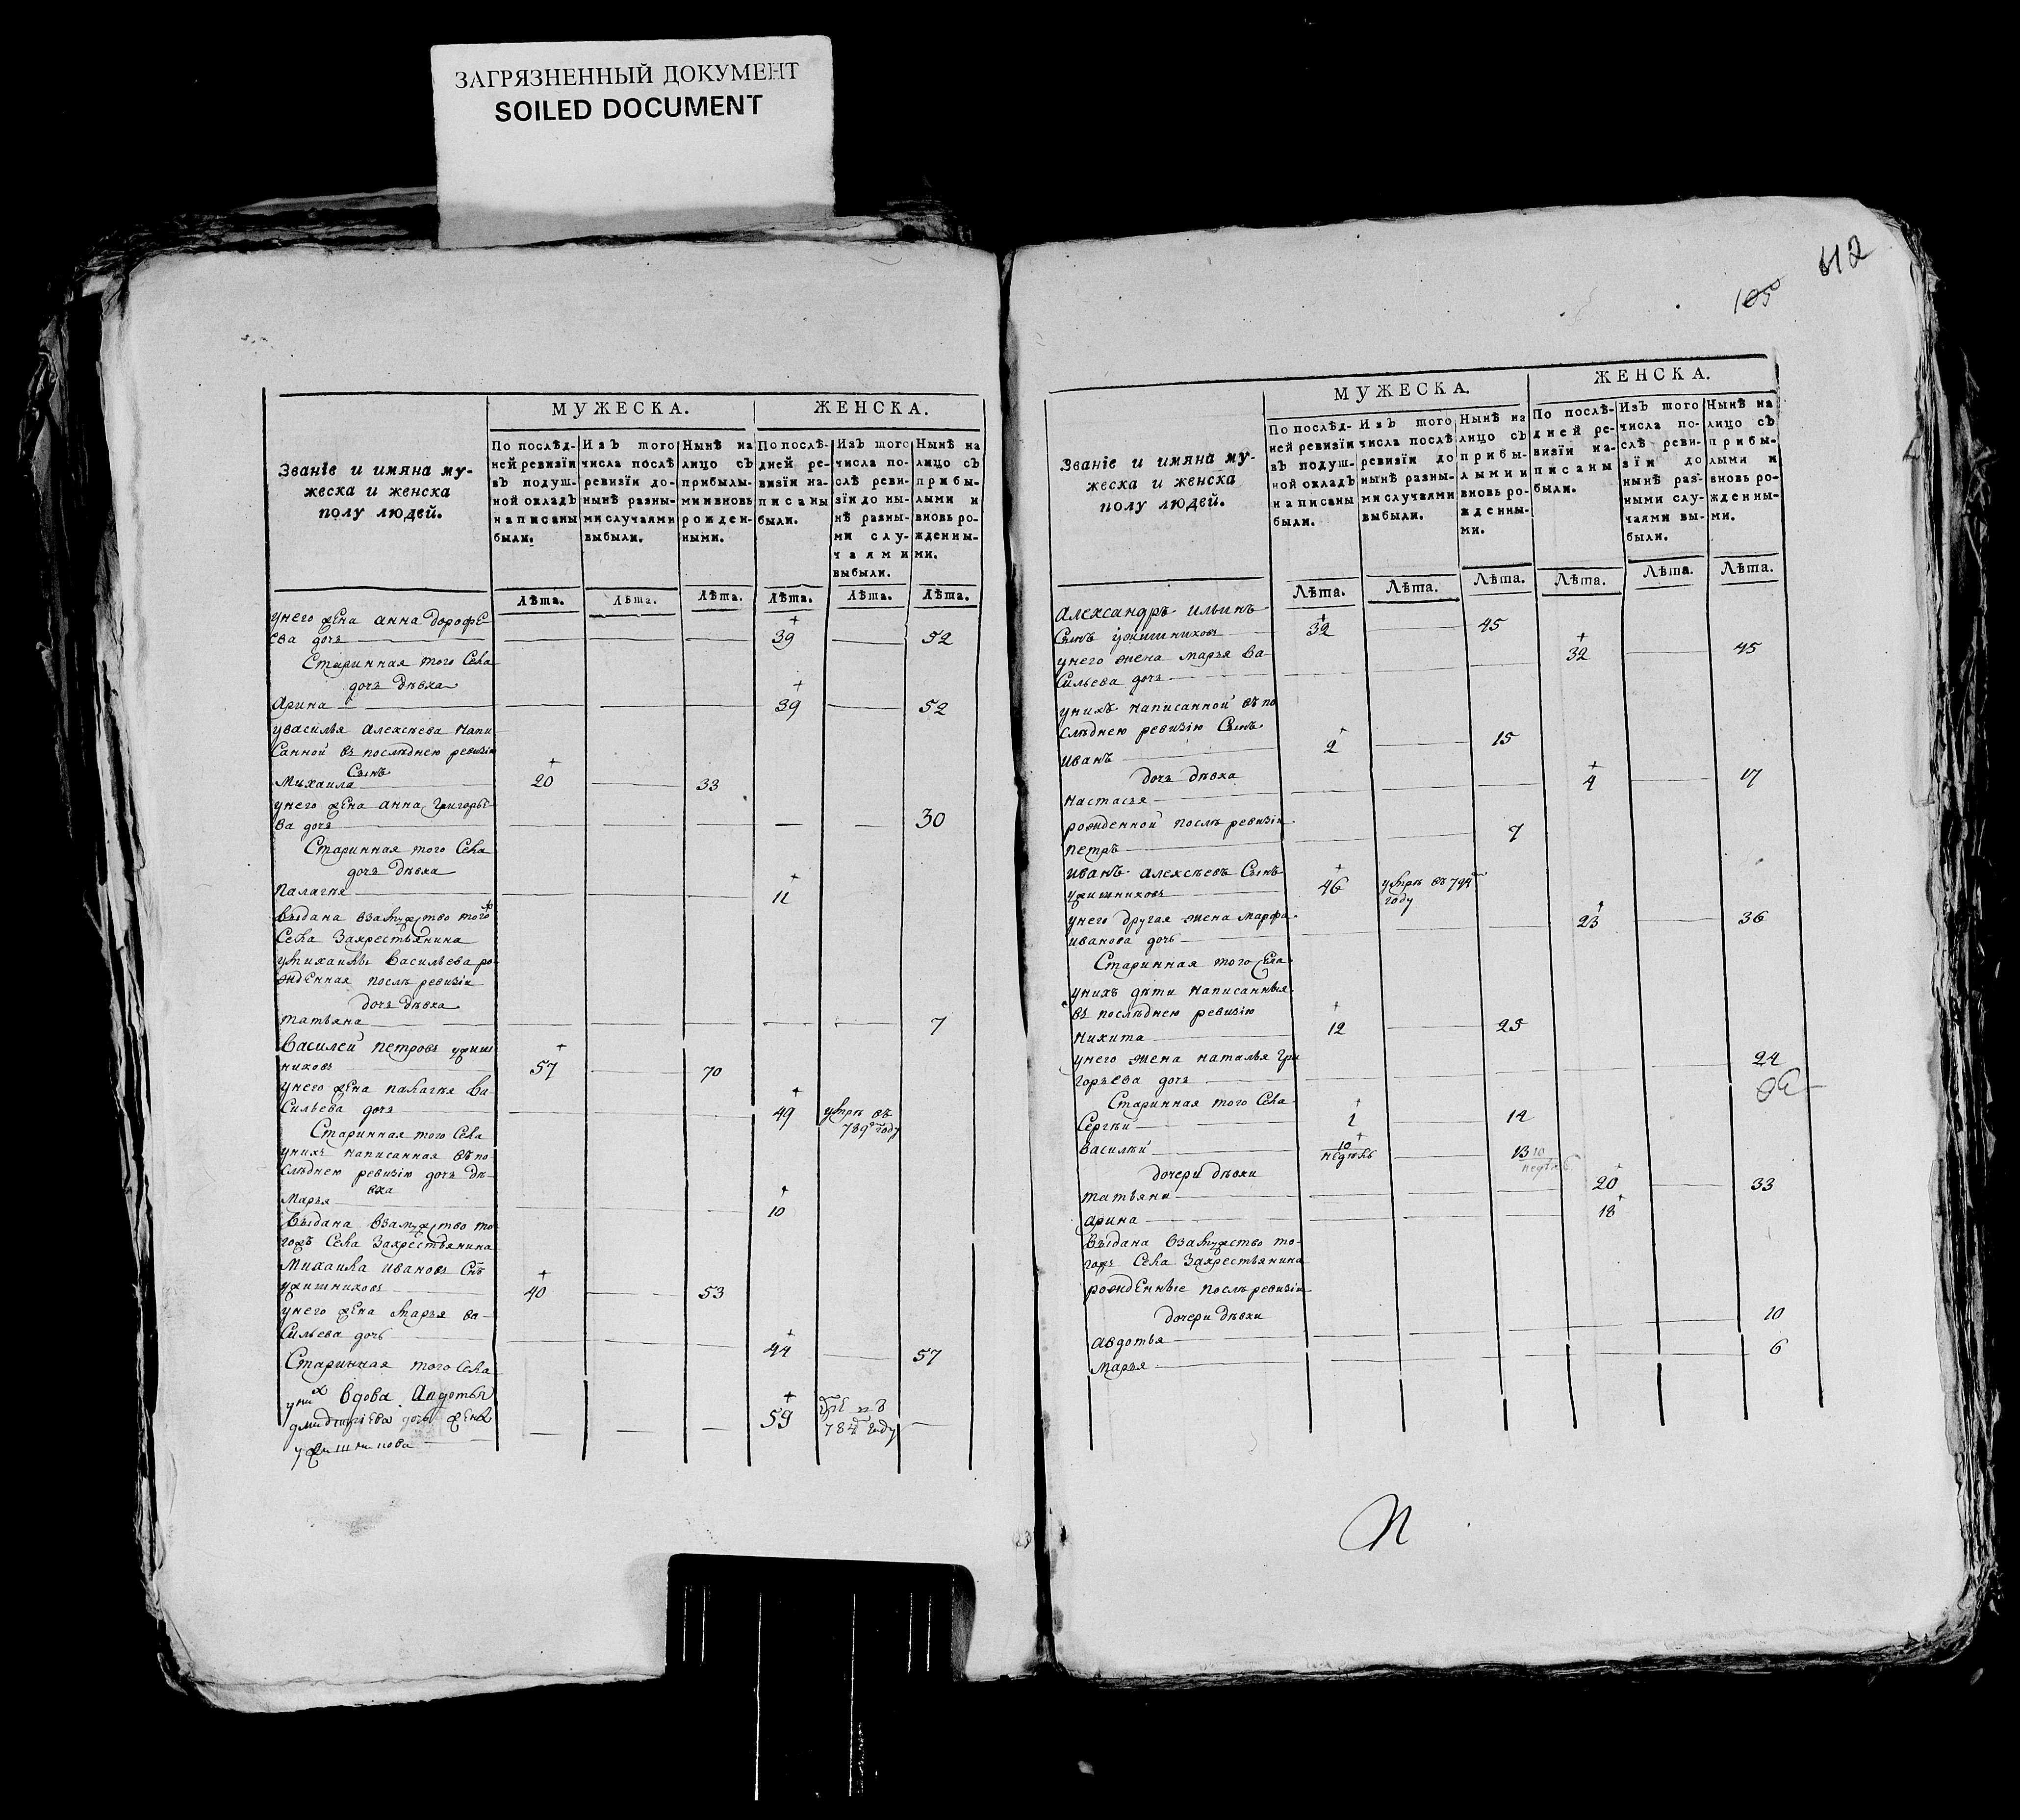 ЗАГРЯЗНЕННЫЙ ДОКУМЕНТ
SOILED DOCUMENT
Званіе и имяна му-
жеска и женска
полу людей.
МУЖЕСКА.
ЖЕНСКА.
По послѣд-
ней ревизіи
въ подуш-
ной окладъ
написаны
были.
Изъ того
числа послѣ
ревизіи до-
нынѣ разны-
ми случаями
выбыли.
Нынѣ на
лицо съ
прибылы-
ми и вновь
рожден-
ными.
По послѣ-
дней ре-
визіи на-
писаны
были.
Изъ того
числа по-
слѣ реви-
зіи до ны-
нѣ разны-
ми слу-
чаями
выбыли.
Нынѣ на
лицо съ
прибы-
лыми и
вновь ро-
жденны-
ми.
Лѣта. Лѣта. Лѣта. Лѣта. Лѣта. Лѣта.
унего жена анна дорофе
ева дочь 39 52
Старинная того села
дочь дѣвка
Арина 39 52
увасилья алексѣева напи
санной въ послѣднею ревизію
сынъ
Михаила 20 33
унего жена анна григорье
ва дочь 30
Старинная того села
дочь дѣвка
палагия 11
выдана взамужство того ж
села закрестьянина
умихаилы васильева ро
жденная послѣ ревизіи
дочь дѣвка
татьяна 7
василей петровъ ужиш
никовъ 57 70
унего жена палагия ва-
сильева дочь 49 умре въ
Старинная того села 789 году
унихъ написанная въ по-
слѣднею ревизію дочь дѣ-
вка
Марья 10
выдана взамужство то
гожъ села закрестьянина
Михаила ивановъ снъ
ужишниковъ 40 53
унего жена марья ва-
сильева дочь 44 57
Старинная того села
уних вдова Авдотья
дмитриева дочь жена 59 784 году
ужишникова
412
105
Званіе и имяна му-
жеска и женска
полу людей.
МУЖЕСКА.
ЖЕНСКА.
По послѣд-
ней ревизіи
въ подуш-
ной окладъ
написаны
были.
Изъ того
числа послѣ
ревизіи до
нынѣ разны-
ми случаями
выбыли.
Нынѣ на
лицо съ
прибы-
лыми и
вновь ро-
жденны-
ми.
По послѣ-
дней ре-
визіи на-
писаны
были.
Изъ того
числа по-
слѣ реви-
зіи до
нынѣ раз-
ными слу-
чаями вы-
были.
Нынѣ на
лицо съ
прибы-
лыми и
вновь ро-
жденны-
ми.
Лѣта. Лѣта. Лѣта. Лѣта. Лѣта. Лѣта.
Александръ ильинъ
сынъ ужишниковъ 32 45
унего жена марья ва- 32 45
сильева дочь
унихъ написанной въ по
слѣднею ревизію сынъ
иванъ 2 15
дочь дѣвка
настасья 4 17
рожденной послѣ ревизіи
петръ 7
иванъ алексѣевъ сынъ
ужишниковъ 46 умре въ 794 году
унего другая жена марфа
иванова дочь 23 36
Старинная того села
унихъ дѣти написанныя
въ послѣднею ревизію
никита 12 25
унего жена наталья гри
горьева дочь 24
Старинная того села
Сергѣй 1 14
василѣй 10 недѣль 13 10
дочери дѣвки
татьяна 20 33
арина 18
выдана взамужство то-
гожъ села закрестьянина
рожденные послѣ ревизіи
дочери дѣвки
авдотья 10
марья 6